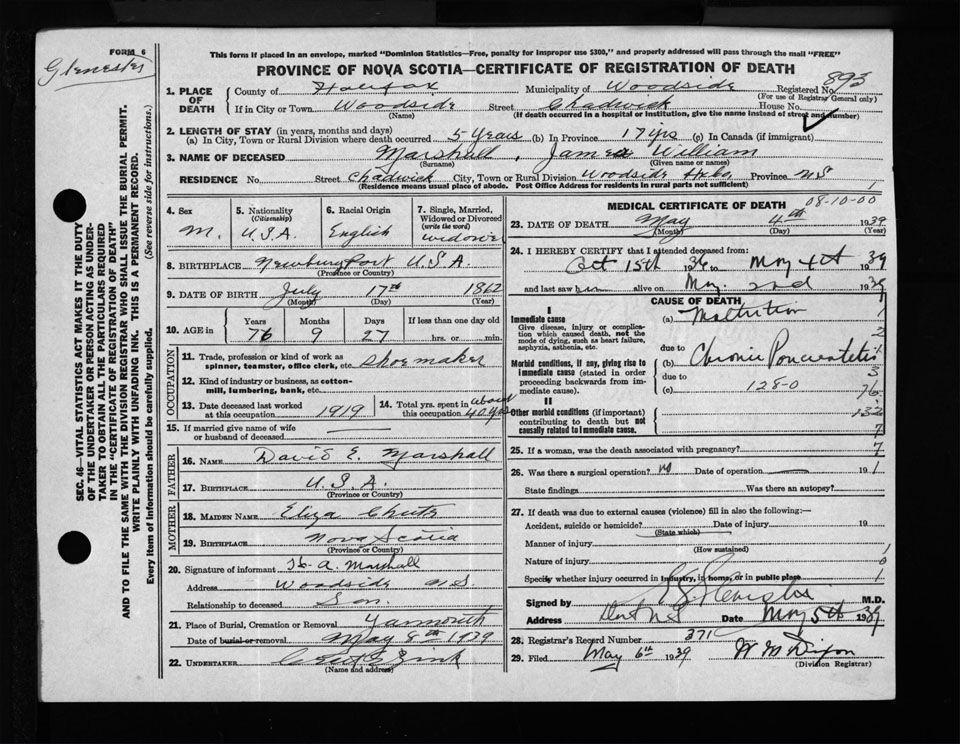 FORM 6
Glenester
This form if placed in an envelope, marked "Dominion Statistics—Free, penalty for improper use $300," and properly addressed will pass through the mail "FREE"
PROVINCE OF NOVA SCOTIA—CERTIFICATE OF REGISTRATION OF DEATH
893
1. PLACE OF DEATH County of Halifax Municipality of Woodside Registered No.
(For use of Registrar General only)
If in City or Town Woodside Street Chadwick House No.
(Name) (If death occurred in a hospital or institution, give the name instead of street and number)
2. LENGTH OF STAY (in years, months and days)
(a) In City, Town or Rural Division where death occurred 5 years (b) In Province 17 yrs (c) In Canada (if immigrant)
3. NAME OF DECEASED Marshall, James William
(Surname) (Given name or names)
RESIDENCE No. Street Chadwick City, Town or Rural Division Woodside Hfx Co. Province NS
(Residence means usual place of abode. Post Office Address for residents in rural parts not sufficient) 1
4. Sex M.
5. Nationality (Citizenship) U.S.A.
6. Racial Origin English
7. Single, Married, Widowed or Divorced (write the word) widower
8. BIRTHPLACE Newbury Port U.S.A.
(Province or Country)
9. DATE OF BIRTH July 17th 1862
(Month) (Day) (Year)
10. AGE in Years Months Days If less than one day old
76 9 27 hrs. min.
OCCUPATION
11. Trade, profession or kind of work as spinner, teamster, office clerk, etc. Shoe maker
12. Kind of industry or business, as cotton-mill, lumbering, bank, etc.
13. Date deceased last worked at this occupation 1919
14. Total yrs. spent in this occupation about 40 yrs
15. If married give name of wife or husband of deceased
FATHER
16. NAME David E. Marshall
17. BIRTHPLACE U.S.A.
(Province or Country)
MOTHER
18. MAIDEN NAME Eliza Chute
19. BIRTHPLACE Nova Scotia
(Province or Country)
20. Signature of informant H. A. Marshall
Address Woodside N.S.
Relationship to deceased Son
21. Place of Burial, Cremation or Removal Yarmouth
Date of burial or removal May 8th 1939
22. UNDERTAKER Zink
(Name and address)
MEDICAL CERTIFICATE OF DEATH
08-10-00
23. DATE OF DEATH May 4th 1939
(Month) (Day) (Year)
24. I HEREBY CERTIFY that I attended deceased from:
Oct 15th 1936 to May 4th 1939
and last saw him alive on May 2nd 1939
CAUSE OF DEATH
I
Immediate cause
Give disease, injury or complication which caused death, not the mode of dying, such as heart failure, asphyxia, asthenia, etc.
(a) Malnutrition
due to
Morbid conditions, if any, giving rise to immediate cause (stated in order proceeding backwards from immediate cause).
(b) Chronic Pancreatitis
due to
(c) 128-0
II
Other morbid conditions (if important) contributing to death but not causally related to immediate cause.
132
25. If a woman, was the death associated with pregnancy?
26. Was there a surgical operation? no Date of operation 19
State findings Was there an autopsy?
27. If death was due to external causes (violence) fill in also the following:—
Accident, suicide or homicide? Date of injury 19
(State which)
Manner of injury
(How sustained)
Nature of injury
Specify whether injury occurred in industry, in home, or in public place
Signed by M.D.
Address Dart N.S Date May 5th 1939
28. Registrar's Record Number 371
29. Filed May 6th 1939 W M Dixon
(Division Registrar)
SEC. 46—VITAL STATISTICS ACT MAKES IT THE DUTY OF THE UNDERTAKER OR PERSON ACTING AS UNDERTAKER TO OBTAIN ALL THE PARTICULARS REQUIRED IN THE "CERTIFICATE OF REGISTRATION OF DEATH" AND TO FILE THE SAME WITH THE DIVISION REGISTRAR WHO SHALL ISSUE THE BURIAL PERMIT.
WRITE PLAINLY WITH UNFADING INK. THIS IS A PERMANENT RECORD.
Every item of information should be carefully supplied. (See reverse side for instructions.)